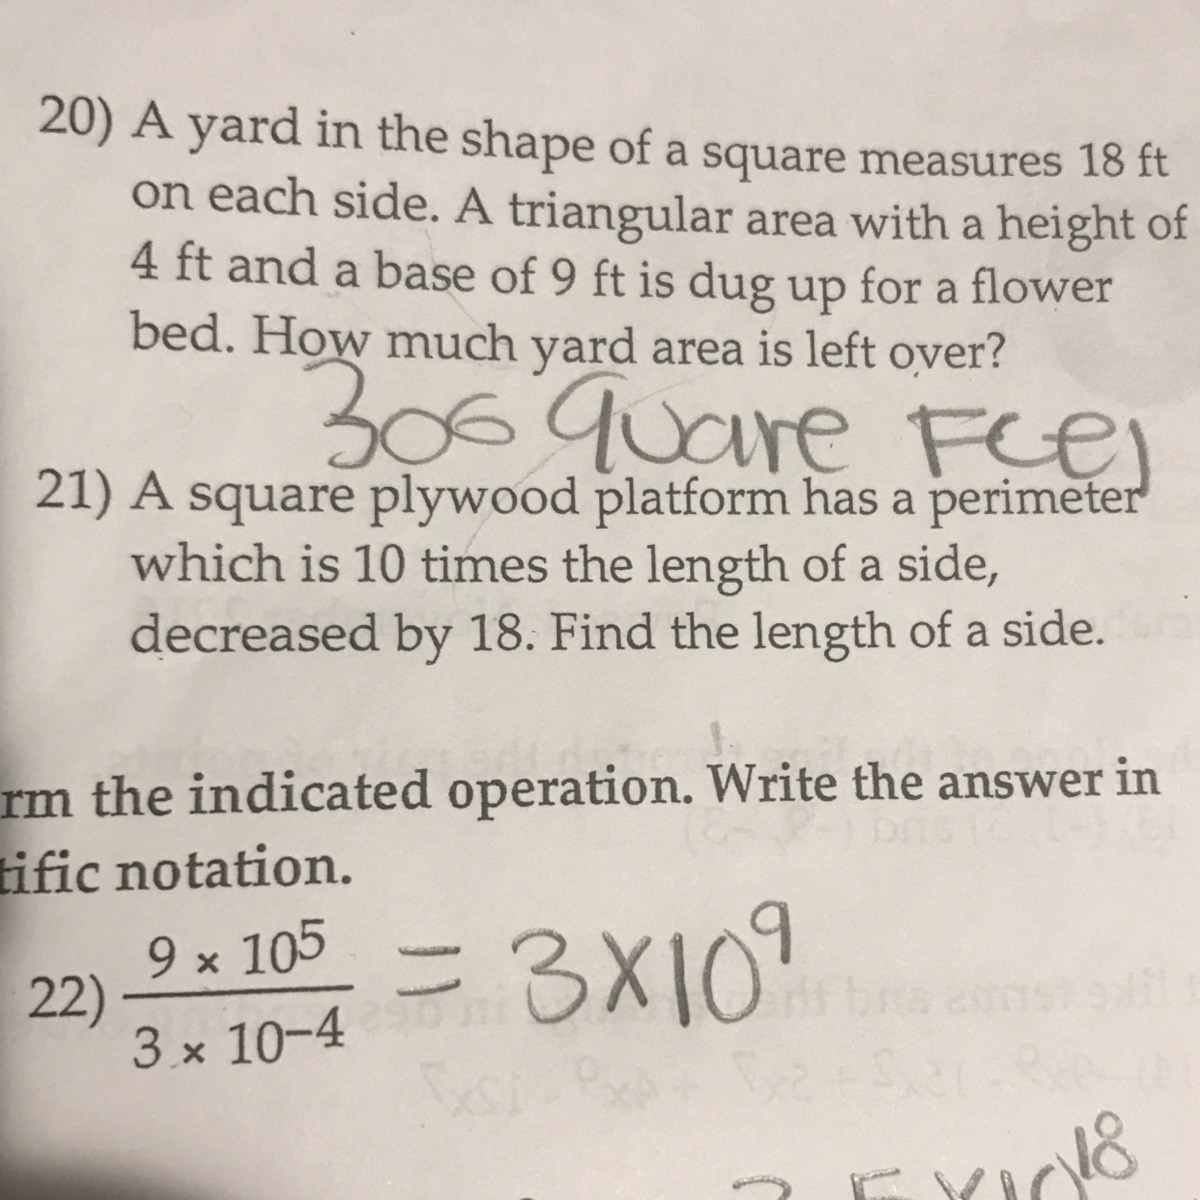 20) A yard in the shape of a square measures 18 ft
on each side. A triangular area with a height of
4 ft and a base of 9 ft is dug up for a flower
bed. How much yard area is left over?
306 Square
21) A square plywood platform has a perimeter
which is 10 times the length of a side,
decreased by 18. Find the length of a side.
rm the indicated operation. Write the answer in
tific notation.
22) 9 × 10⁵ = 3X10⁹
3 × 10⁻⁴